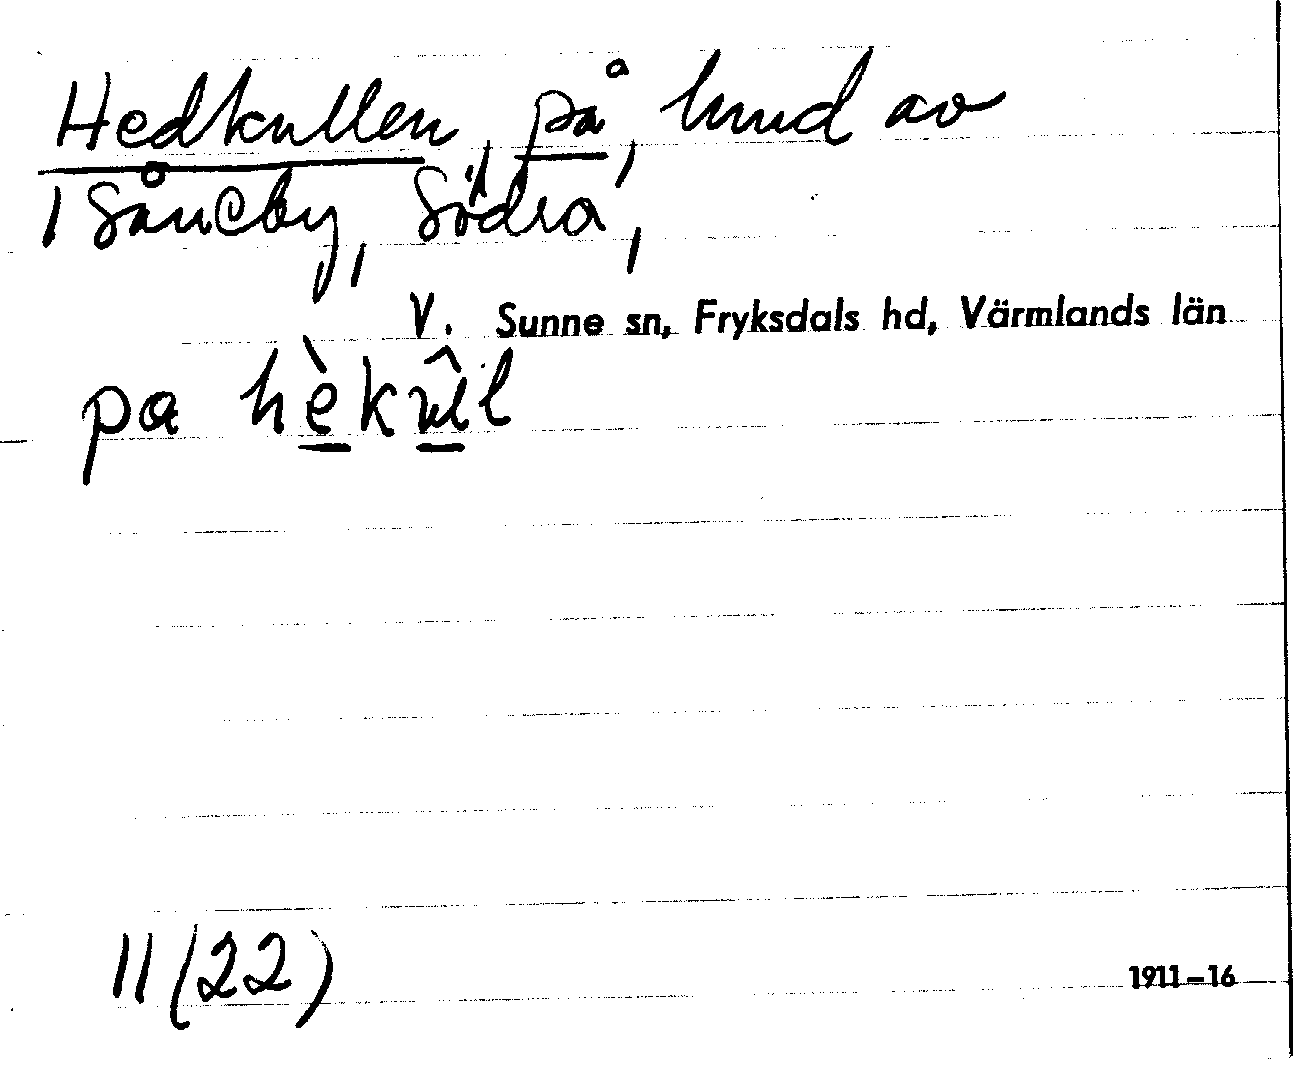 Hedkullen, på, hmd av
Såneby, Södra,
V. Sunne sn, Fryksdals hd, Värmlands län
pa hèkûl
11 (22)
1911–16